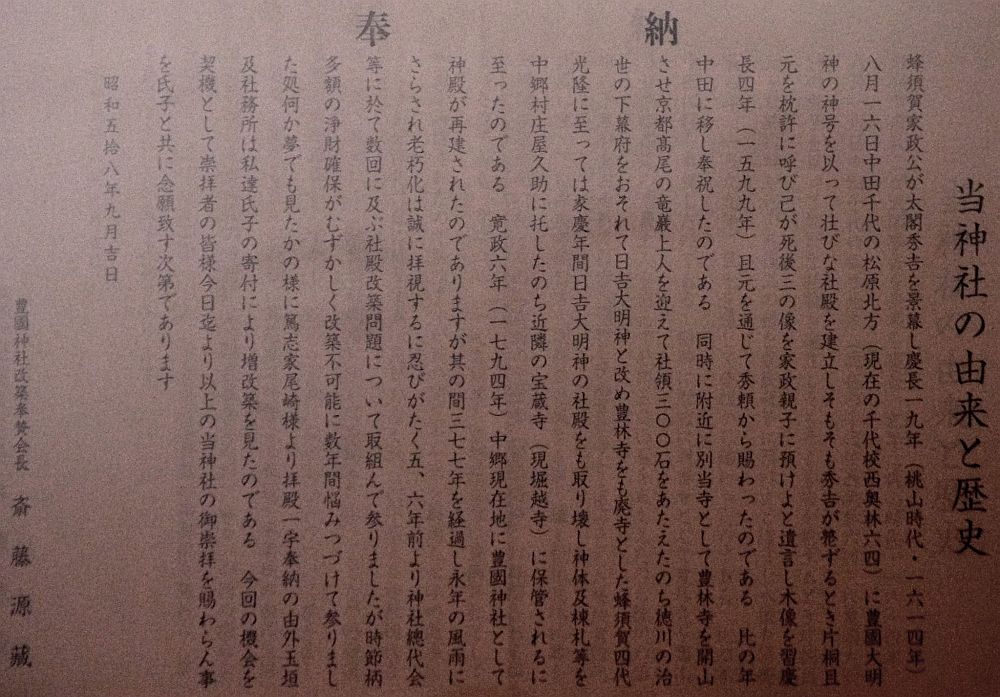 奉納
当神社の由来と歴史
蜂須賀家政公が太閤秀吉を景慕し慶長一九年（桃山時代・一六一四年）
八月一六日中田千代の松原北方（現在の千代校西奥林六四）に豊國大明
神の神号を以って壮びな社殿を建立しそもそも秀吉が薨ずるとき片桐且
元を枕許に呼び己が死後三の像を家政親子に預けよと遺言し木像を習慶
長四年（一五九九年）且元を通じて秀頼から賜わったのである　比の年
中田に移し奉祝したのである　同時に附近に別当寺として豊林寺を開山
させ京都高尾の竜巖上人を迎えて社領三〇〇石をあたえたのち徳川の治
世の下幕府をおそれて日吉大明神と改め豊林寺をも廃寺とした蜂須賀四代
光隆に至っては家慶年間日吉大明神の社殿をも取り壊し神体及棟札等を
中郷村庄屋久助に托したのち近隣の宝蔵寺（現堀越寺）に保管されるに
至ったのである　寛政六年（一七九四年）中郷現在地に豊國神社として
神殿が再建されたのでありますが其の間三七七年を経過し永年の風雨に
さらされ老朽化は誠に拝視するに忍びがたく五、六年前より神社總代会
等に於て数回に及ぶ社殿改築問題について取組んで参りましたが時節柄
多額の浄財確保がむずかしく改築不可能に数年間悩みつづけて参りまし
た処何か夢でも見たかの様に篤志家尾崎様より拝殿一宇奉納の由外玉垣
及社務所は私達氏子の寄村により増改築を見たのである　今回の機会を
契機として崇拝者の皆様今日迄より以上の当神社の御崇拝を賜わらん事
を氏子と共に念願致す次第であります
昭和五拾八年九月吉日
豊國神社改築奉賛会長　斎藤源藏